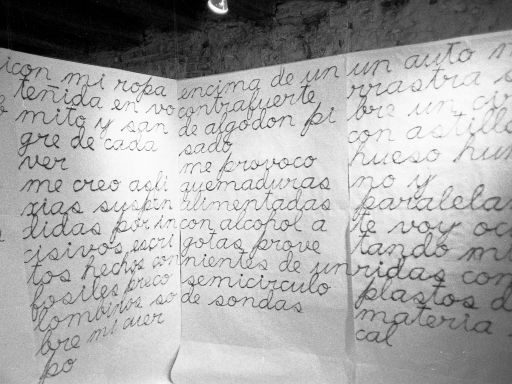 icon mi ropa
teñida en vo
mito y san
gre de cada
ver
me creo asfi
xias suspen
didas por in
cisivos escri
tos hechos con
fosiles preco
lombinos so
bre mi cuer
po
encima de un
contrafuerte
de algodon pi
sado
me provoco
quemaduras
alimentadas
con alcohol a
gotas prove
nientes de un
semicirculo
de sondas
un auto
rrastra
bre un
con astill
hueso hu
no y
paralela
te voy oc
tando mi
ridas con
plastos d
materia
cal